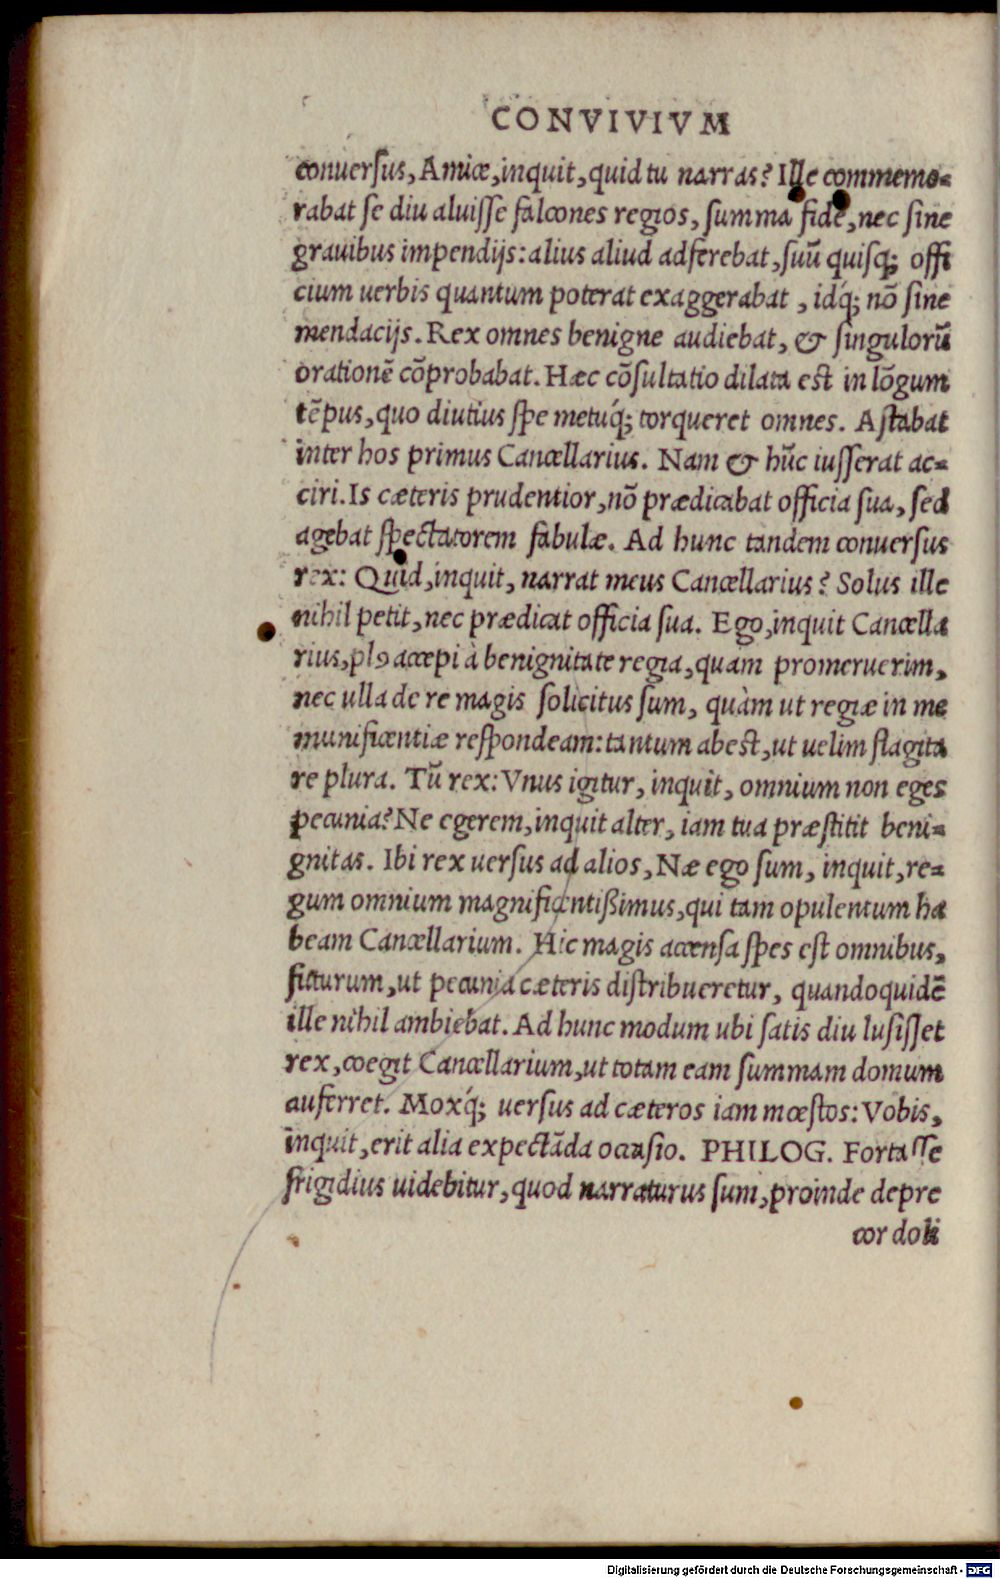 CONVIVIVM
conuersus, Amice, inquit, quid tu narras? Ille commemo-
rabat se diu aluisse falcones regios, summa fide, nec sine
grauibus impendijs: alius aliud adferebat, suũ quisq; offi
cium uerbis quantum poterat exaggerabat, idq́; nõ sine
mendacijs. Rex omnes benigne audiebat, & singulorũ
orationẽ cõprobabat. Hæc cõsultatio dilata est in lõgum
tẽpus, quo diutius spe metuq́; torqueret omnes. Astabat
inter hos primus Cancellarius. Nam & hũc iusserat ac-
ciri. Is cæteris prudentior, nõ prædicabat officia sua, sed
agebat spectatorem fabulæ. Ad hunc tandem conuersus
rex: Quid, inquit, narrat meus Cancellarius? Solus ille
nihil petit, nec prædicat officia sua. Ego, inquit Cancella
rius, plꝰ accepi à benignitate regia, quam promeruerim,
nec ulla de re magis solicitus sum, quàm ut regiæ in me
munificentiæ respondeam: tantum abest, ut uelim flagita
re plura. Tũ rex: Vnus igitur, inquit, omnium non eges
pecunia? Ne egerem, inquit alter, iam tua præstitit beni-
gnitas. Ibi rex uersus ad alios, Næ ego sum, inquit, re-
gum omnium magnificentißimus, qui tam opulentum ha
beam Cancellarium. Hic magis accensa spes est omnibus,
futurum, ut pecunia cæteris distribueretur, quandoquidẽ
ille nihil ambiebat. Ad hunc modum ubi satis diu lusisset
rex, coegit Cancellarium, ut totam eam summam domum
auferret. Moxq́; uersus ad cæteros iam mœstos: Vobis,
inquit, erit alia expectãda occasio. PHILOG. Fortasse
frigidius uidebitur, quod narraturus sum, proinde depre
cor doli
Digitalisierung gefördert durch die Deutsche Forschungsgemeinschaft - DFG